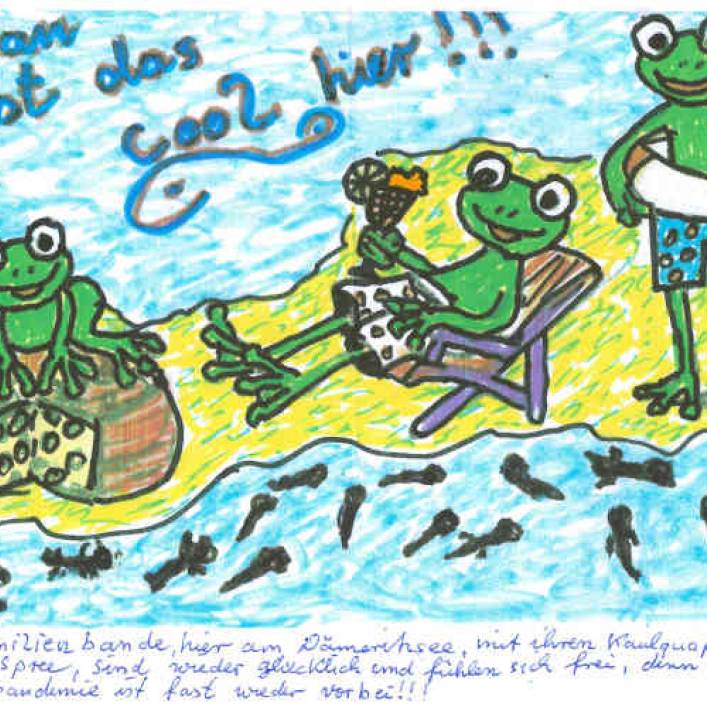 an
st das
cool hier!!!
milienbande, hier am Dämeritzsee, mit ihren Kaulquap
spree, sind wieder glücklich und fühlen sich frei, denn
pandemie ist fast wieder vorbei!!!